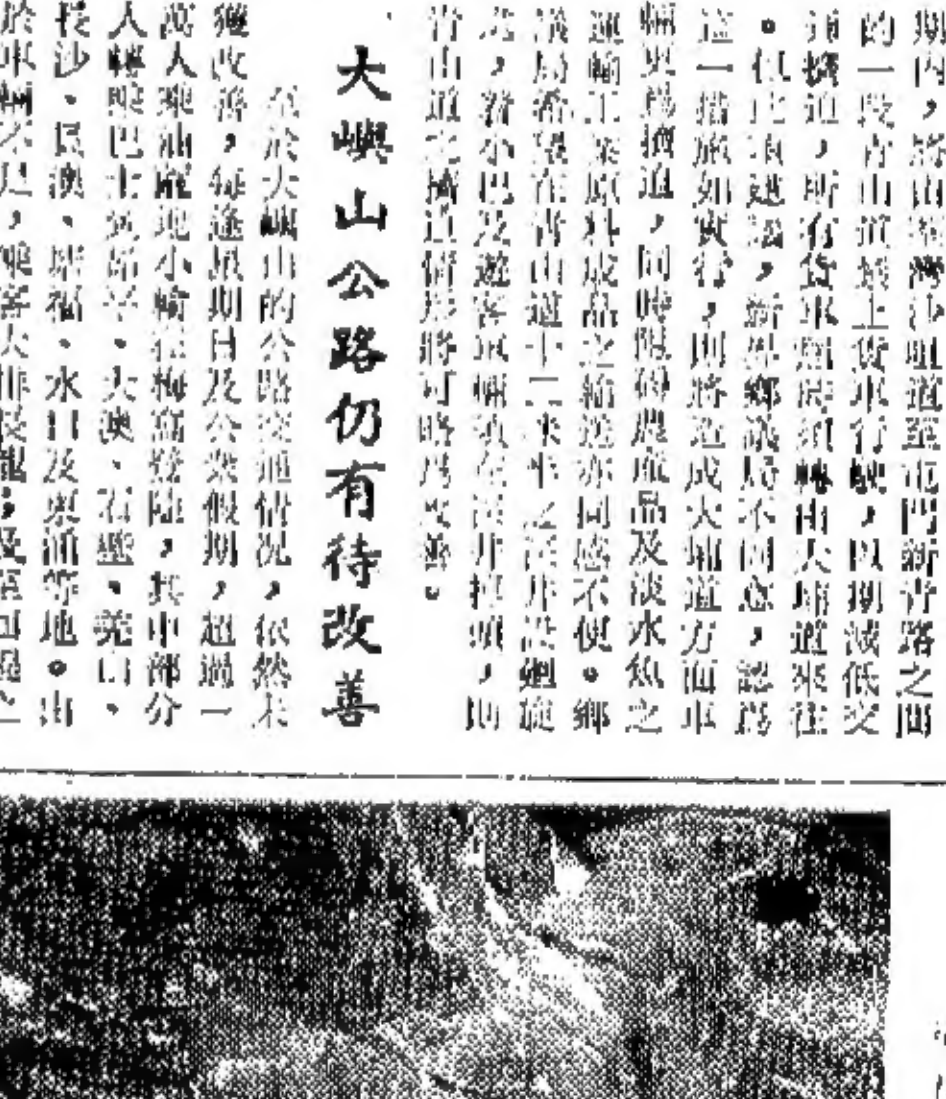 期內，將由荃灣汀咀道至屯門新青路之間
的一段青山道禁止貨車行駛，以期減低交
通擠迫，所有貨車屆時須轉由大埔道來往
。但此項建議，新界鄉議局不同意，認爲
這一措施如實行，則將造成大埔道方面車
輛更爲擠迫，同時限碍農產品及淡水魚之
運輸工業原料成品之輸送亦同感不便。鄉
議局希望在青山道十二米半之深井設廻旋
，着小巴及遊客車輛須在深井掉頭，則
青山道之擠迫情形將可略爲改善。
大嶼山公路仍有待改善
至於大嶼山的公路交通情況，依然未
獲改善，每逢星期日及公衆假期，超過一
萬人乘油蔴地小輪在梅窩登陸，其中部分
人轉乘巴士前昂平、大澳、石壁、羌山、
長沙、貝澳、塘福、水口及東涌等地。由
於車輛不足，乘客大排長龍，